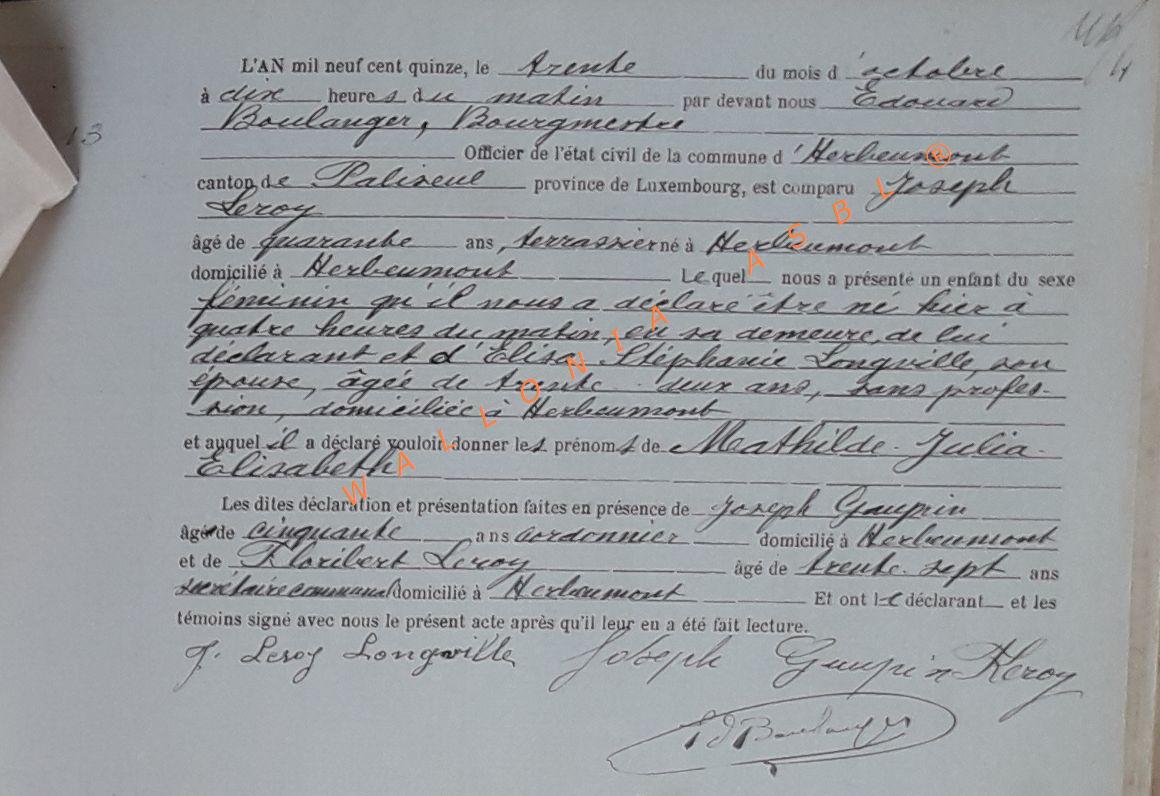 L'AN mil neuf cent quinze, le trente du mois d'octobre
à dix heures du matin par devant nous Édouard
13
Boulanger, Bourgmestre
Officier de l'état civil de la commune d'Herbeumont
canton de Paliseul province de Luxembourg, est comparu Joseph
Leroy
âgé de quarante ans, terrassier né à Herbeumont
domicilié à Herbeumont Lequel nous a présenté un enfant du sexe
féminin qu'il nous a déclaré être né hier à
quatre heures du matin, en sa demeure, de lui
déclarant et d'Élisa Stéphanie Longville, son
épouse, âgée de trente-deux ans, sans profes-
sion, domiciliée à Herbeumont
et auquel il a déclaré vouloir donner les prénoms de Mathilde-Julia-
Élisabeth
Les dites déclaration et présentation faites en présence de Joseph Gaupin
âgé de cinquante ans cordonnier domicilié à Herbeumont
et de Floribert Leroy âgé de trente-sept ans
secrétaire communal domicilié à Herbeumont Et ont le déclarant et les
témoins signé avec nous le présent acte après qu'il leur en a été fait lecture.
J. Leroy Longville Joseph Gaupin FLeroy
Ed Boulanger
WALLONIA ASBL ®